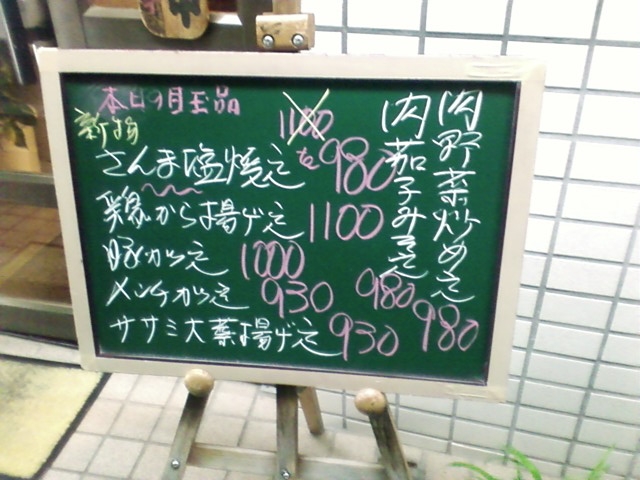 本日の目玉品
新物
さんま塩焼定
1100
を980
鶏から揚げ定 1100
豚かつ定 1000
メンチかつ定 930
ササミ大葉揚げ定 930
肉野菜炒め定 980
肉茄子みそ定 980